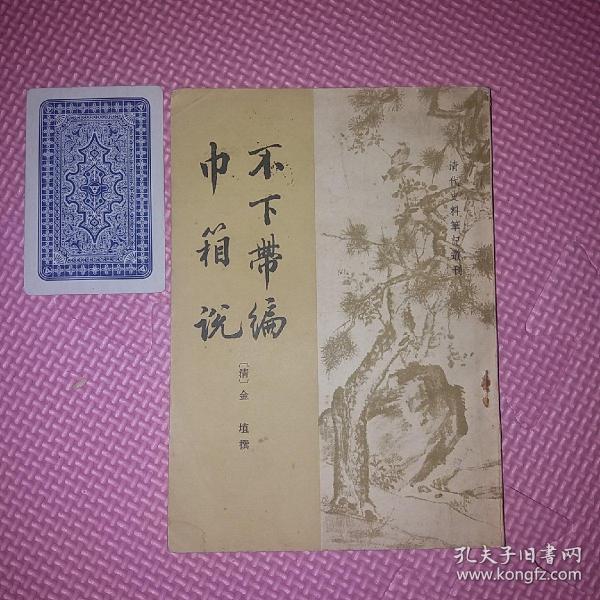 不下帶编
巾箱说
〔清〕金埴撰
清代史料筆記叢刊
孔夫子旧书网
www.kongfz.com